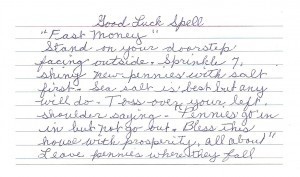 Good Luck Spell
"Fast Money"
Stand on your doorstep
facing outside. Sprinkle 7
shiny new pennies with salt
first. Sea salt is best but any
will do. Toss over your left
shoulder saying - "Pennies go in
in but not go out. Bless this
house with prosperity, all about"
Leave pennies where they fall